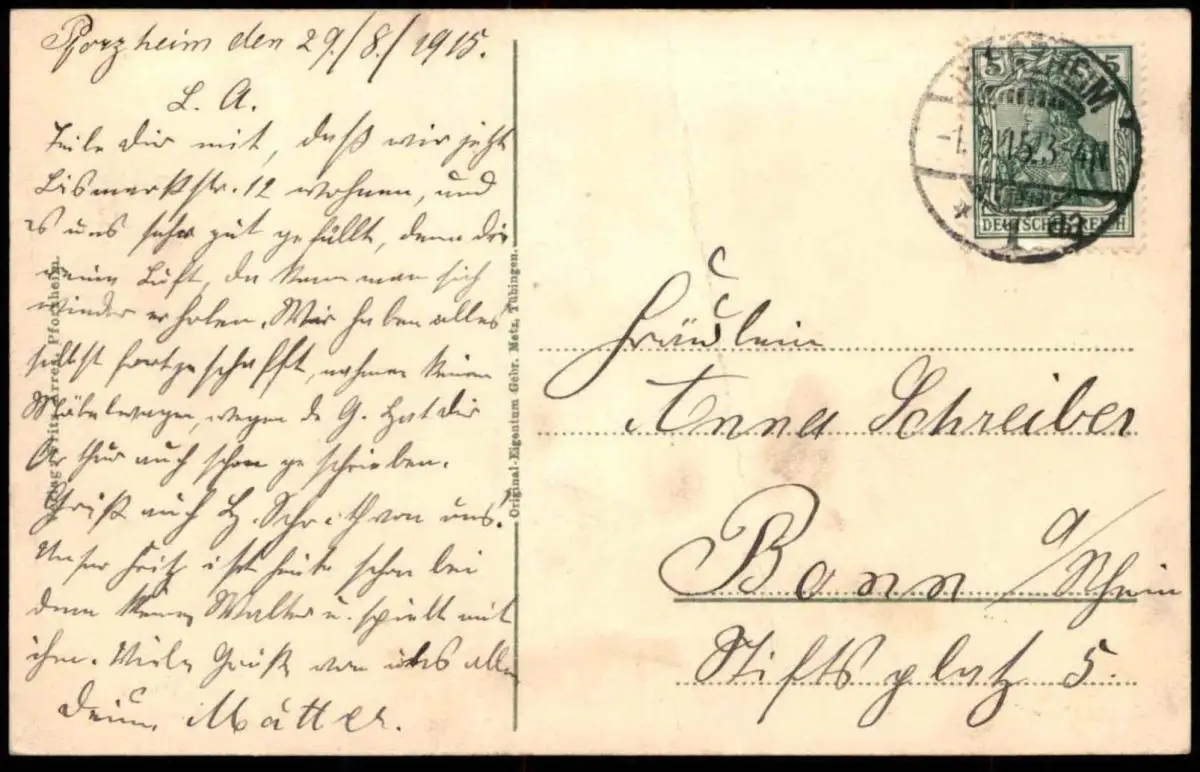 Pforzheim den 29./8./1915.
L. A.
Teile dir mit, daß wir jetzt
Bismarkstr. 12 wohnen, und
es uns sehr gut gefällt, denn die
reine Luft, da kann man sich
wieder erholen. Wir haben alles
selbst fortgeschafft, nahmen keinen
Möbelwagen, wegen de G. Hat dir
Arthur auch schon geschrieben.
Grüß auch von uns.
Unser Fritz ist heute schon bei
dem kleinen Walter u. spielt mit
ihm. Viele Grüße von uns allen
Deine Mutter.
Verlag Fritz Pforzheim.
Original-Eigentum Gebr. Metz, Tübingen.
PFORZHEIM
5 5
DEUTSCHES REICH
Fräulein
Anna Schreiber
Bonn a/Rhein
Stiftsplatz 5.